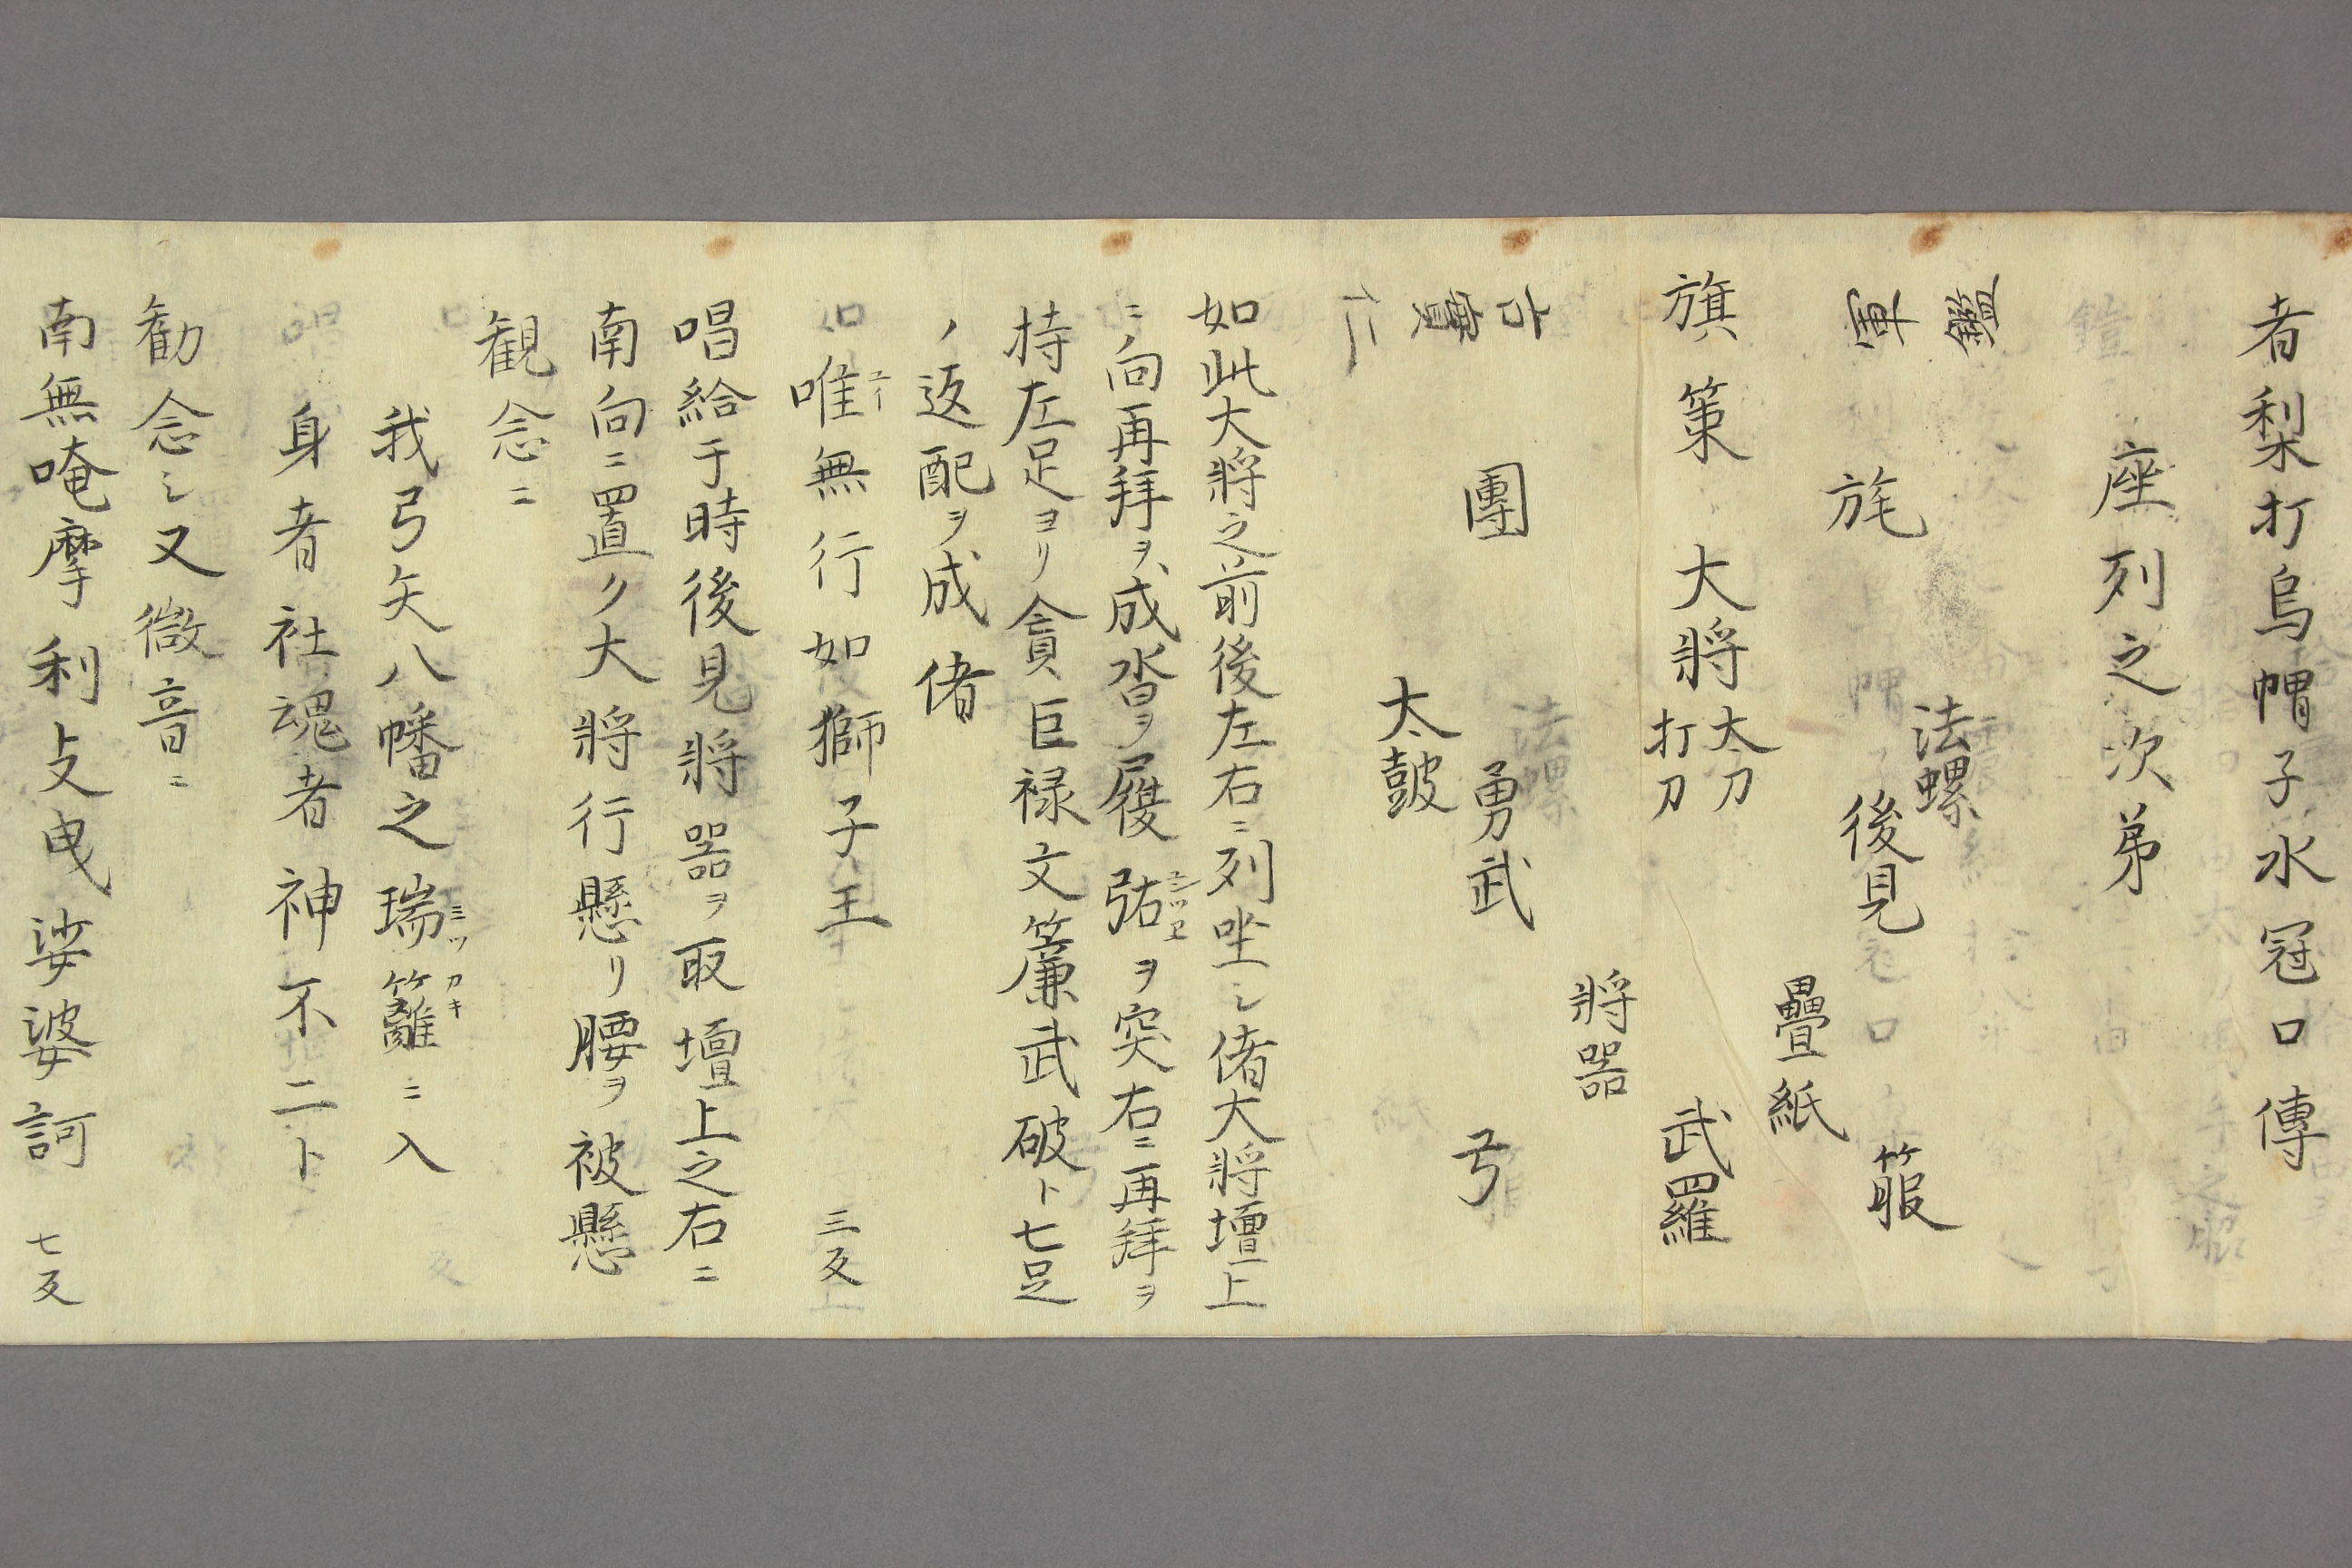 者梨打烏帽子水冠口傳
座列之次弟
鑑
軍
旄
法螺
後見
疊紙
箙
旗
策
大將
太刀
打刀
武羅
將器
古實
仁
團
勇武
弓
太皷
如此大將之前後左右ニ列坐シ偖大將壇上
ニ向再拜ヲ成沓ヲ履弣ヲ突右ニ再拜ヲ
持左足ヨリ貪巨禄文簾武破ト七足
ノ返配ヲ成偖
唯無行如獅子王 三反
唱給于時後見將器ヲ取壇上之右ニ
南向ニ置ク大將行懸リ腰ヲ被懸
観念ニ
我弓矢八幡之瑞籬ニ入
ミツカキ
身者社魂者神不二ト
勧念シ又微音ニ
南無唵摩利支曳娑婆訶 七反